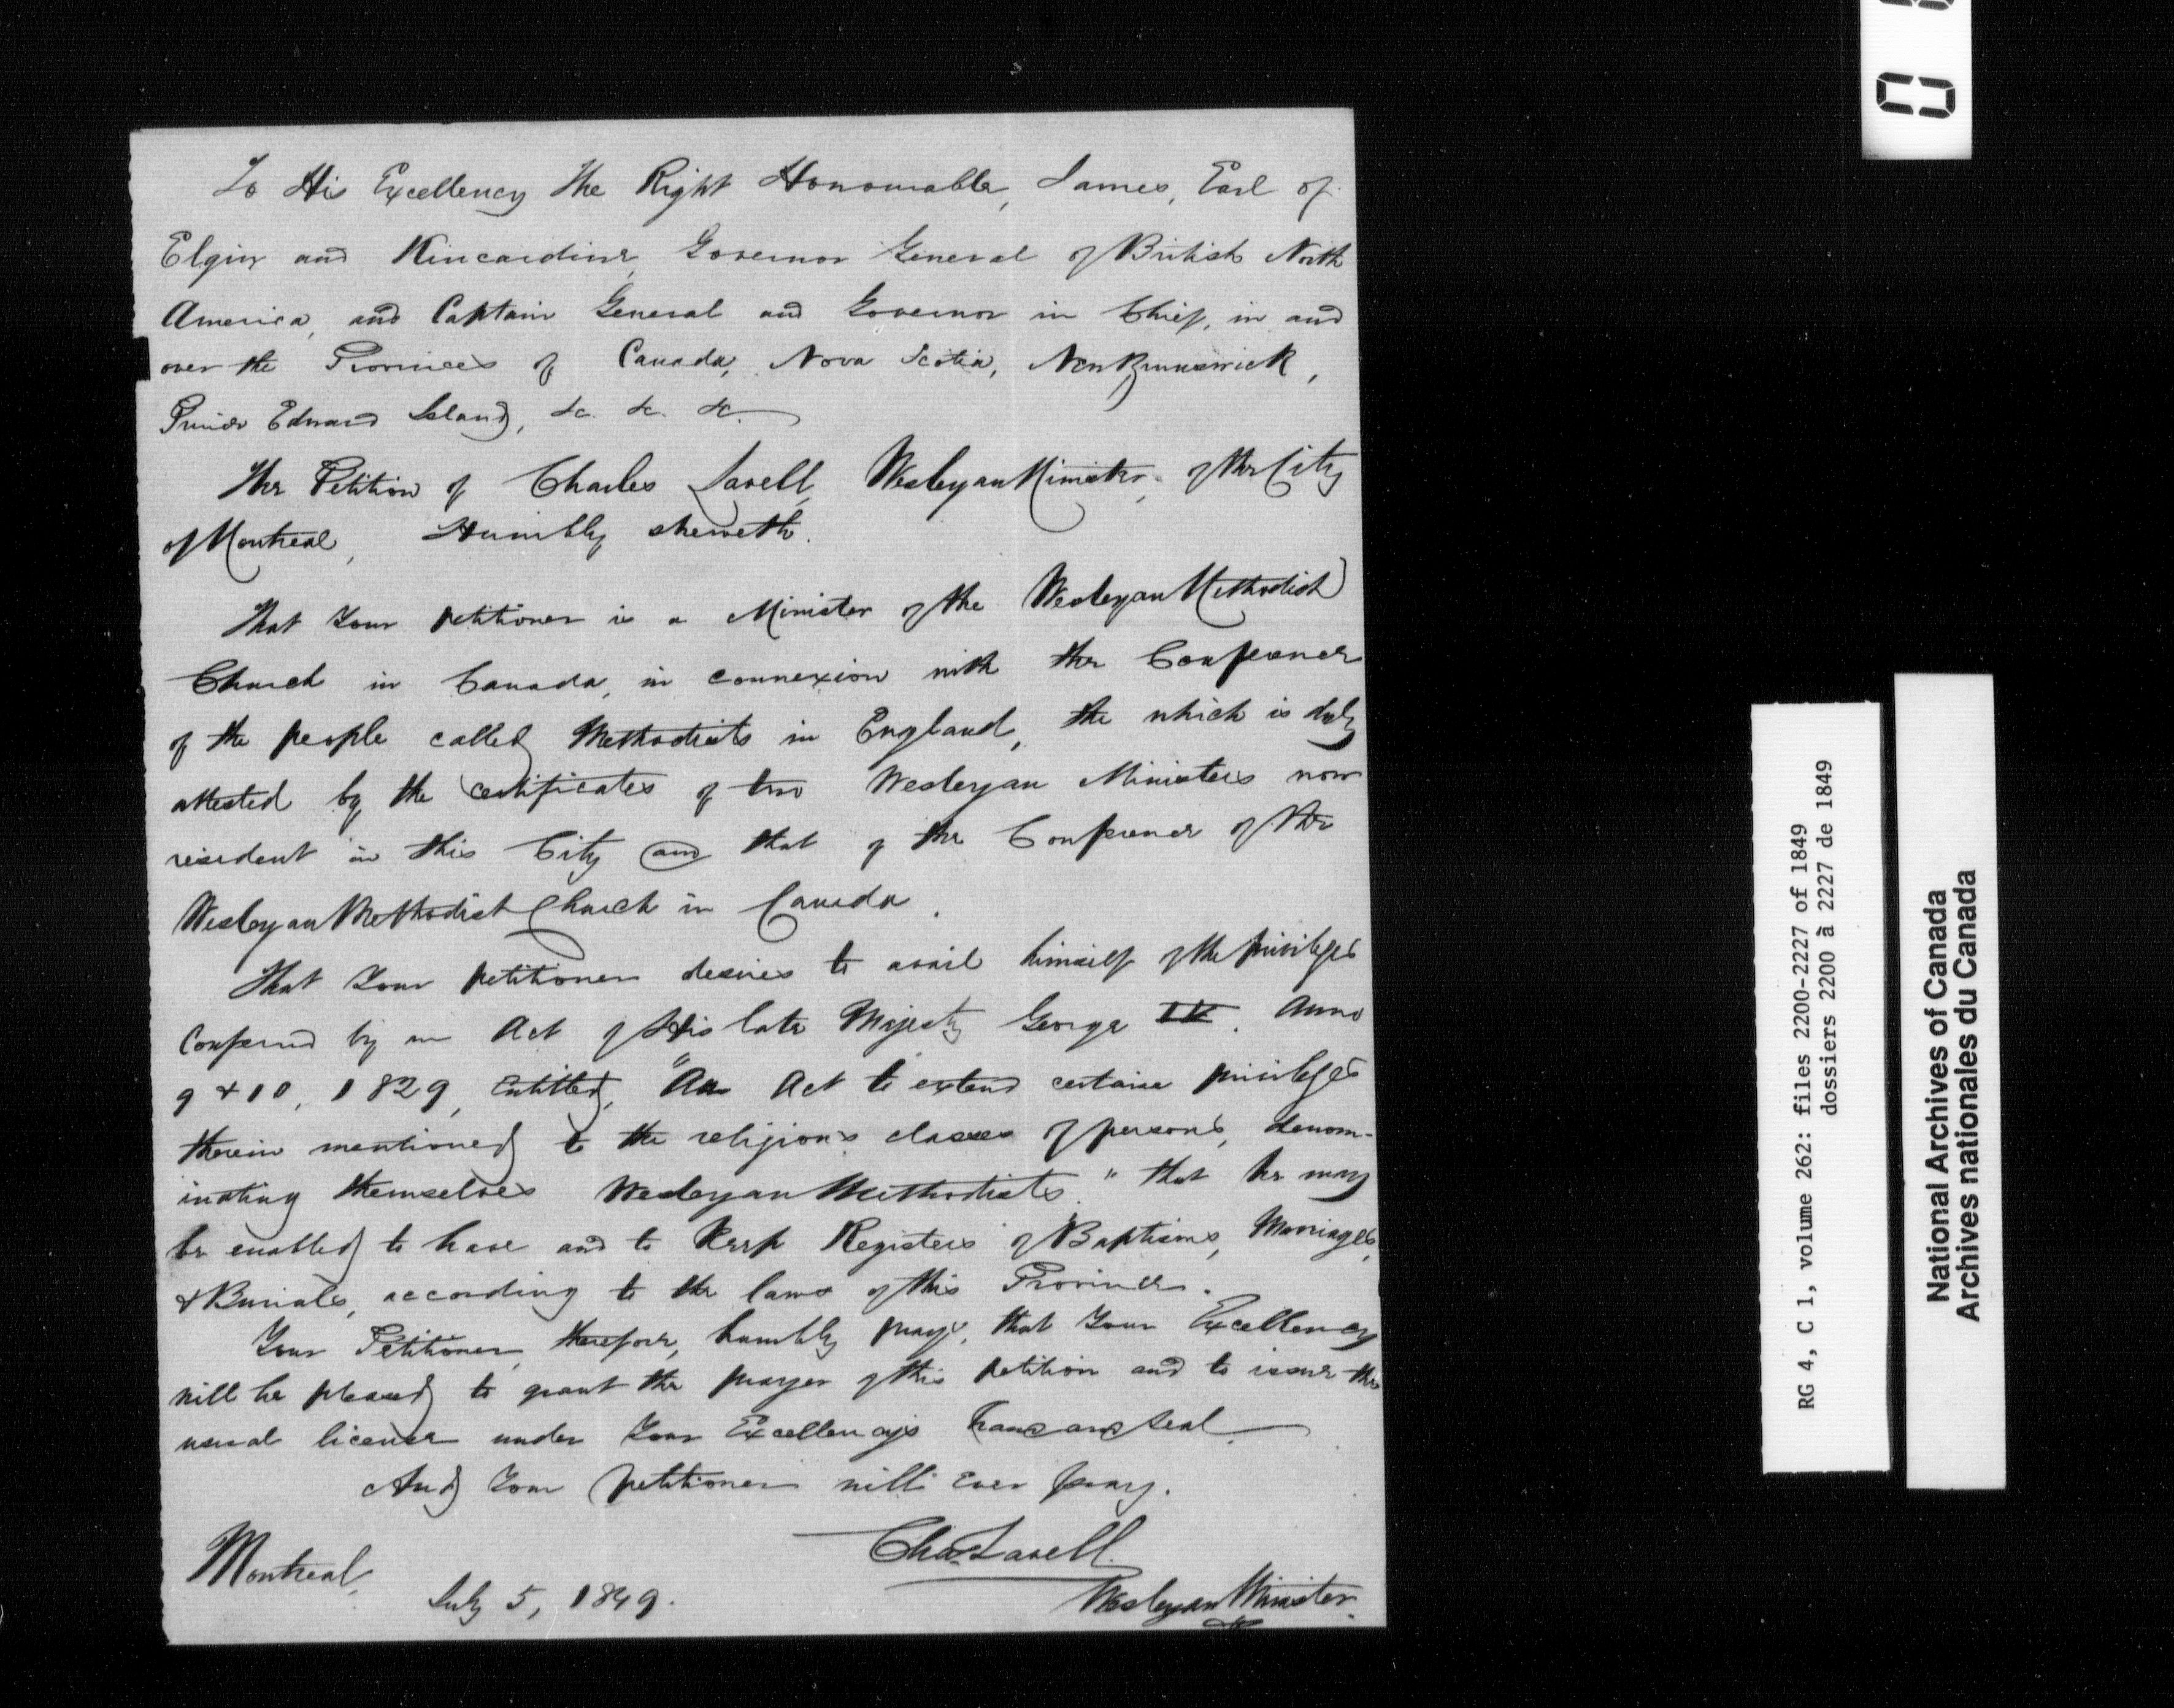 To His Excellency The Right Honourable, James, Earl of
Elgin and Kincardine, Governor General of British North
America, and Captain General and Governor in Chief, in and
over the Provinces of Canada, Nova Scotia, New Brunswick,
Prince Edward Island, &c. &c. &c.
The Petition of Charles Lavell, Wesleyan Minister, of the City
of Montreal, Humbly sheweth.
That Your petitioner is a Minister of the Wesleyan Methodist
Church in Canada, in connexion with the Conference
of the people called Methodists in England, the which is duly
attested by the certificates of two Wesleyan Ministers now
resident in this City and that of the Conference of the
Wesleyan Methodist Church in Canada.
That Your petitioner desires to avail himself of the privileges
Conferred by an Act of His late Majesty George IV. Anno
9 & 10, 1829, Entitled, "An Act to extend certain privileges
therein mentioned to the religious classes of persons, denom-
inating themselves Wesleyan Methodists." that he may
be enabled to have and to keep Registers of Baptisms, Marriages,
& Burials, according to the laws of this Province.
Your Petitioner, therefore, humbly prays, that Your Excellency
will be pleased to grant the prayer of this petition and to issue the
usual license under Your Excellency's hand and seal.
And Your petitioner will ever pray.
Chas. Lavell.
Wesleyan Minister.
Montreal,
July 5, 1849.
RG 4, C 1, volume 262: files 2200-2227 of 1849
dossiers 2200 à 2227 de 1849
National Archives of Canada
Archives nationales du Canada